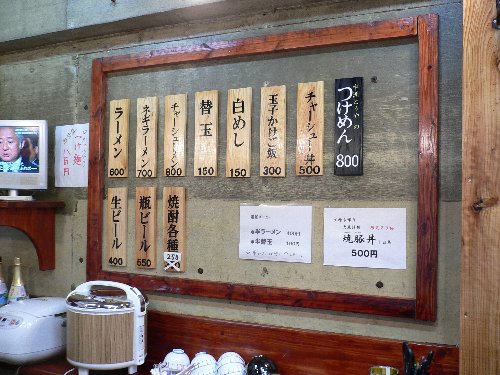 ラーメン
600
ネギラーメン
700
チャーシューメン
800
替玉
150
白めし
150
玉子かけご飯
300
チャーシュー丼
500
つけめん
800
生ビール
400
瓶ビール
650
焼酎各種
250
半ラーメン 400円
半替玉 100円
焼豚丼
500円
つけ麺
八百円